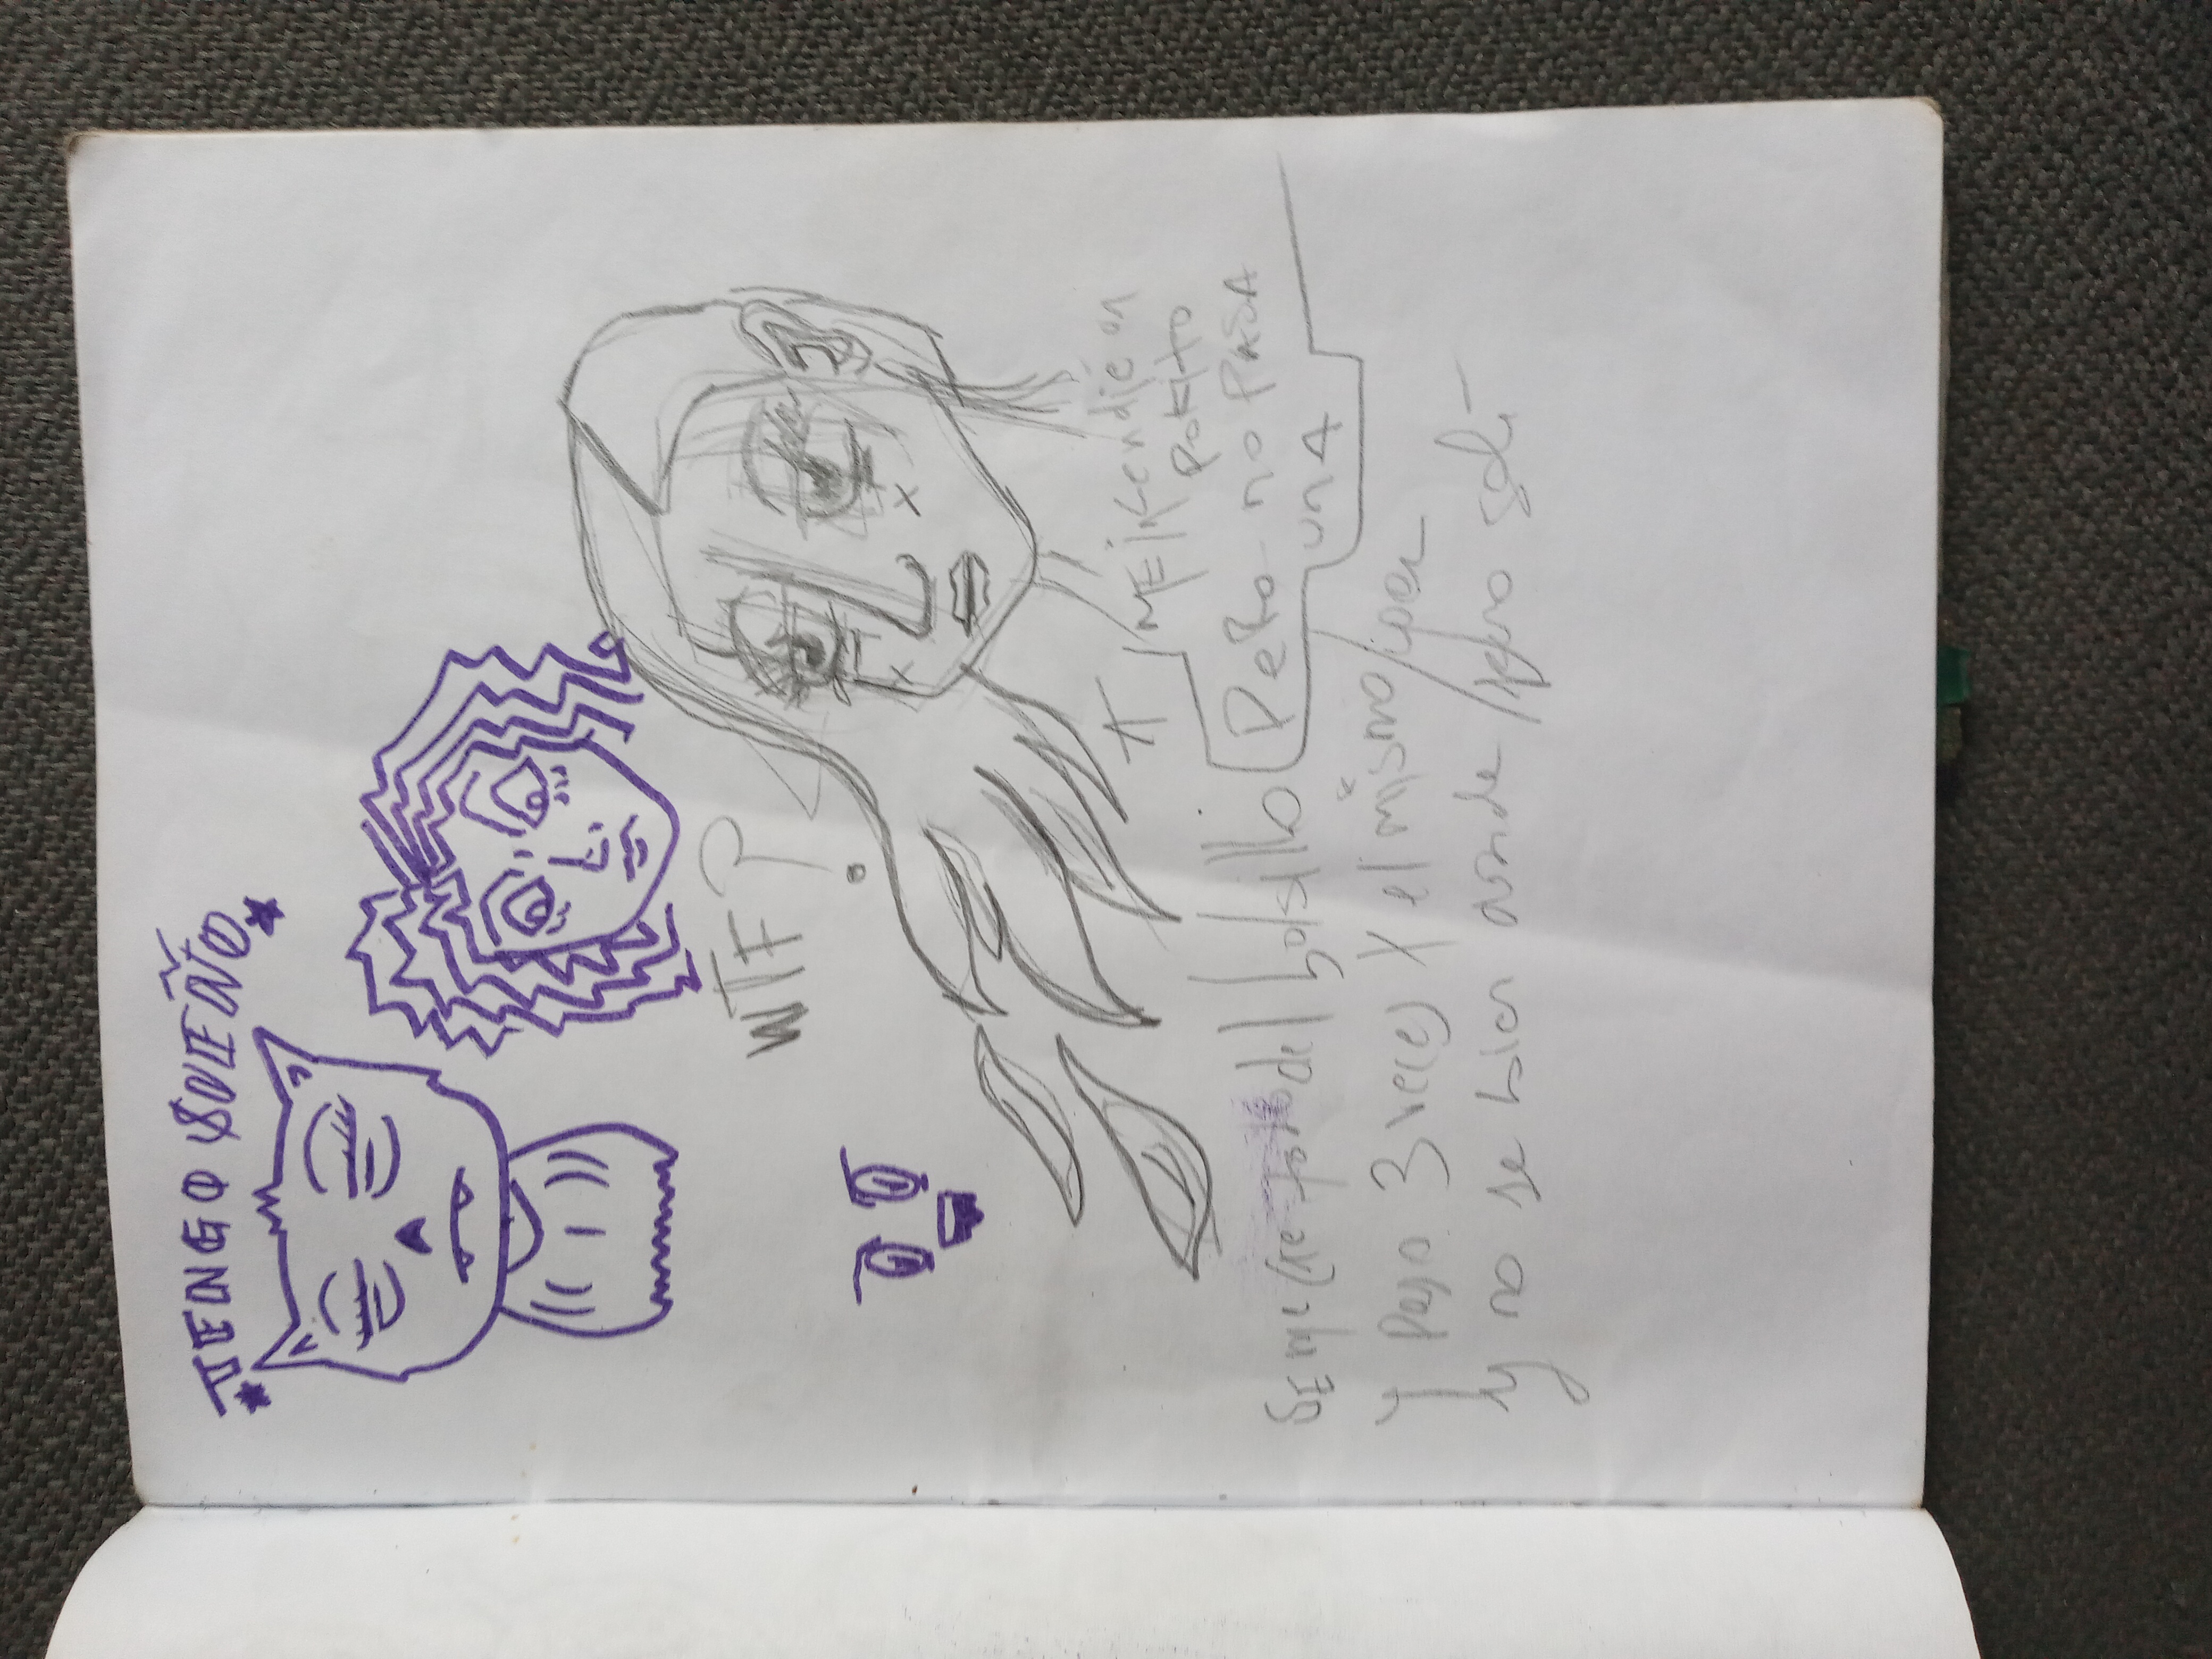 TENGO SUEÑO
WTF?
ME incendié un
POKITO
PERO no PASA
UNA
SE me cae todo del bolsillo
Y paso 3 veces X el mismo lugar
y no se bien donde pero salí